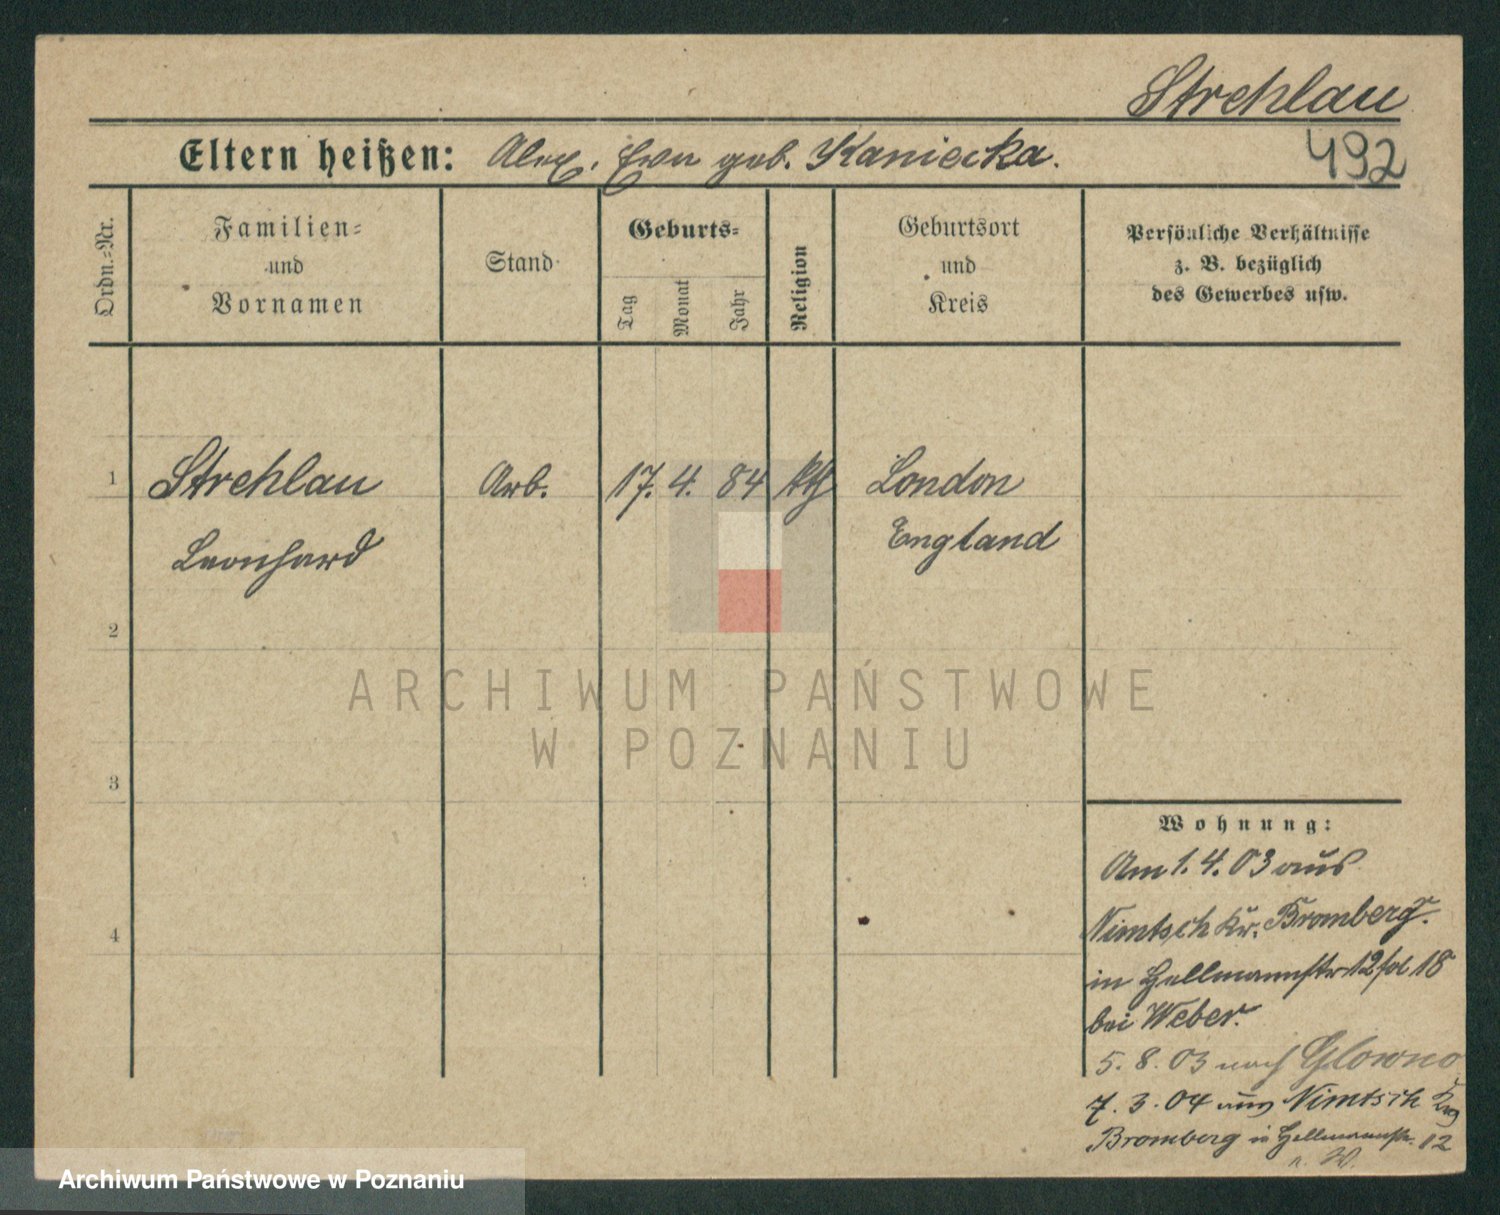 Strehlau
492
Eltern heißen: Alex. Eva geb. Kaniecka.
Ordn.-Nr.
Familien- und Vornamen
Stand
Geburts-
Tag
Monat
Jahr
Religion
Geburtsort und Kreis
Persönliche Verhältnisse
z. B. bezüglich
des Gewerbes usw.
1 Strehlau Arb. 17. 4. 84 kth London
Leonhard England
2
3
4
ARCHIWUM PAŃSTWOWE
W POZNANIU
Wohnung:
Am 1. 4. 03 aus
Nimtsch Kr. Bromberg.
in Hellmannstr 12 18
bei Weber.
5. 8. 03 nach Glowno
7. 3. 04 aus Nimtsch
Bromberg in Hellmannstr. 12
Archiwum Państwowe w Poznaniu